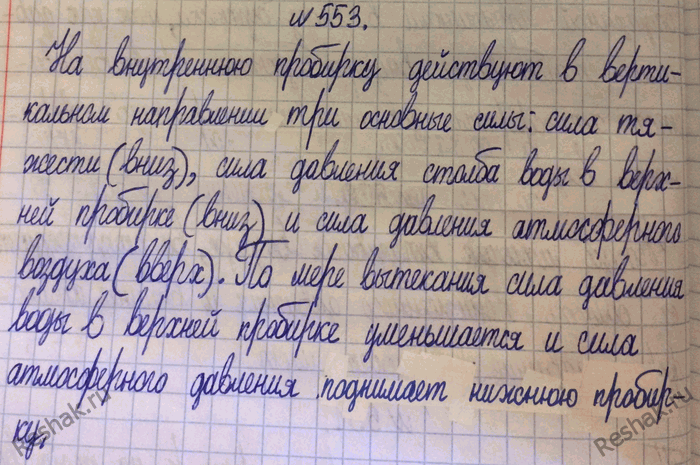 №553.
На внутреннюю пробирку действуют в верти-
кальном направлении три основные силы: сила тя-
жести (вниз), сила давления столба воды в верх-
ней пробирке (вниз) и сила давления атмосферного
воздуха (вверх). По мере вытекания сила давления
воды в верхней пробирке уменьшается и сила
атмосферного давления поднимает нижнюю пробир-
ку.
Reshak.ru
Reshak.ru